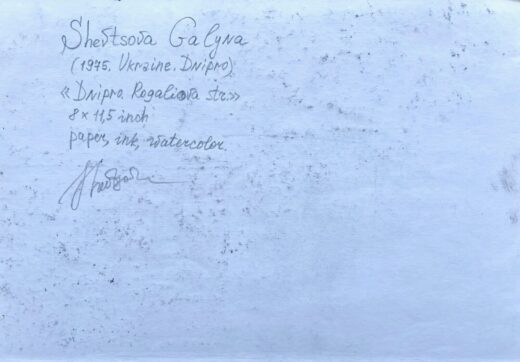 Shevtsova Galyna
(1975. Ukraine. Dnipro)
«Dnipro. Rogaliova str.»
8 x 11,5 inch
paper, ink, watercolor.